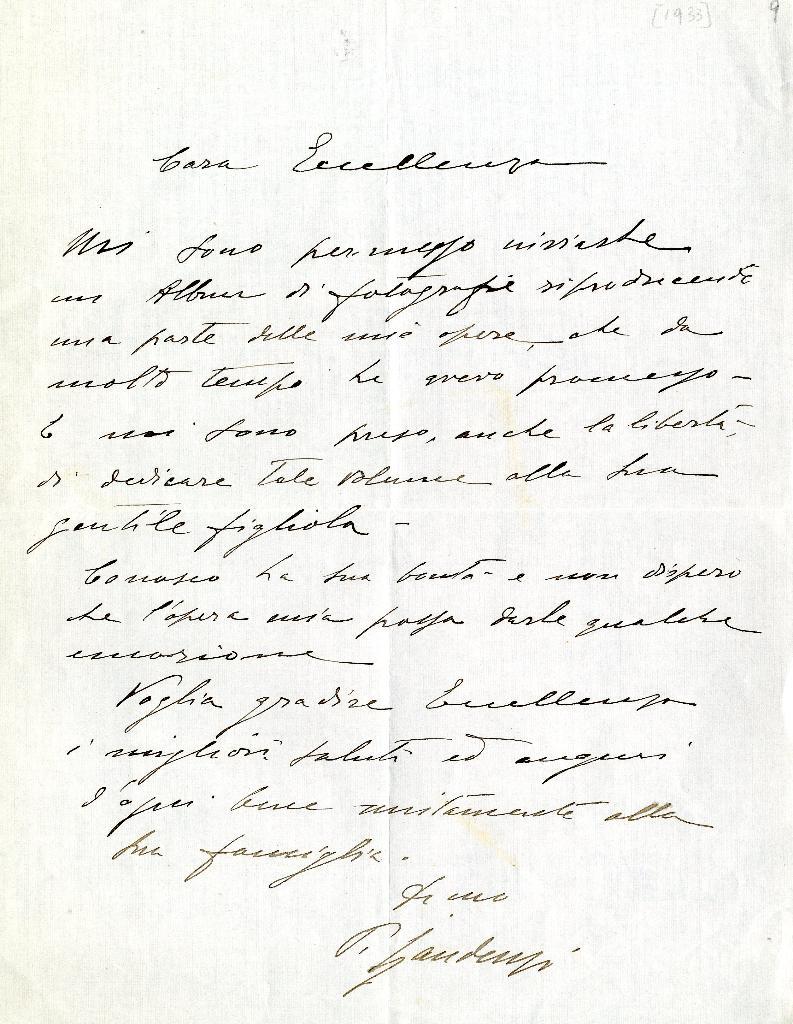 [1933] 9
Cara Eccellenza
Mi sono permesso inviarle
un Album di fotografie riproducenti
una parte delle mie opere, che da
molto tempo le avevo promesso -
E mi sono preso, anche la libertà,
di dedicare tale volume alla Sua
gentile figliola -
Conosco la Sua bontà e non dispero
che l'opera mia possa darle qualche
emozione
Voglia gradire Eccellenza
i migliori saluti ed auguri
d'ogni bene unitamente alla
Sua famiglia.
P. Gaudenzi